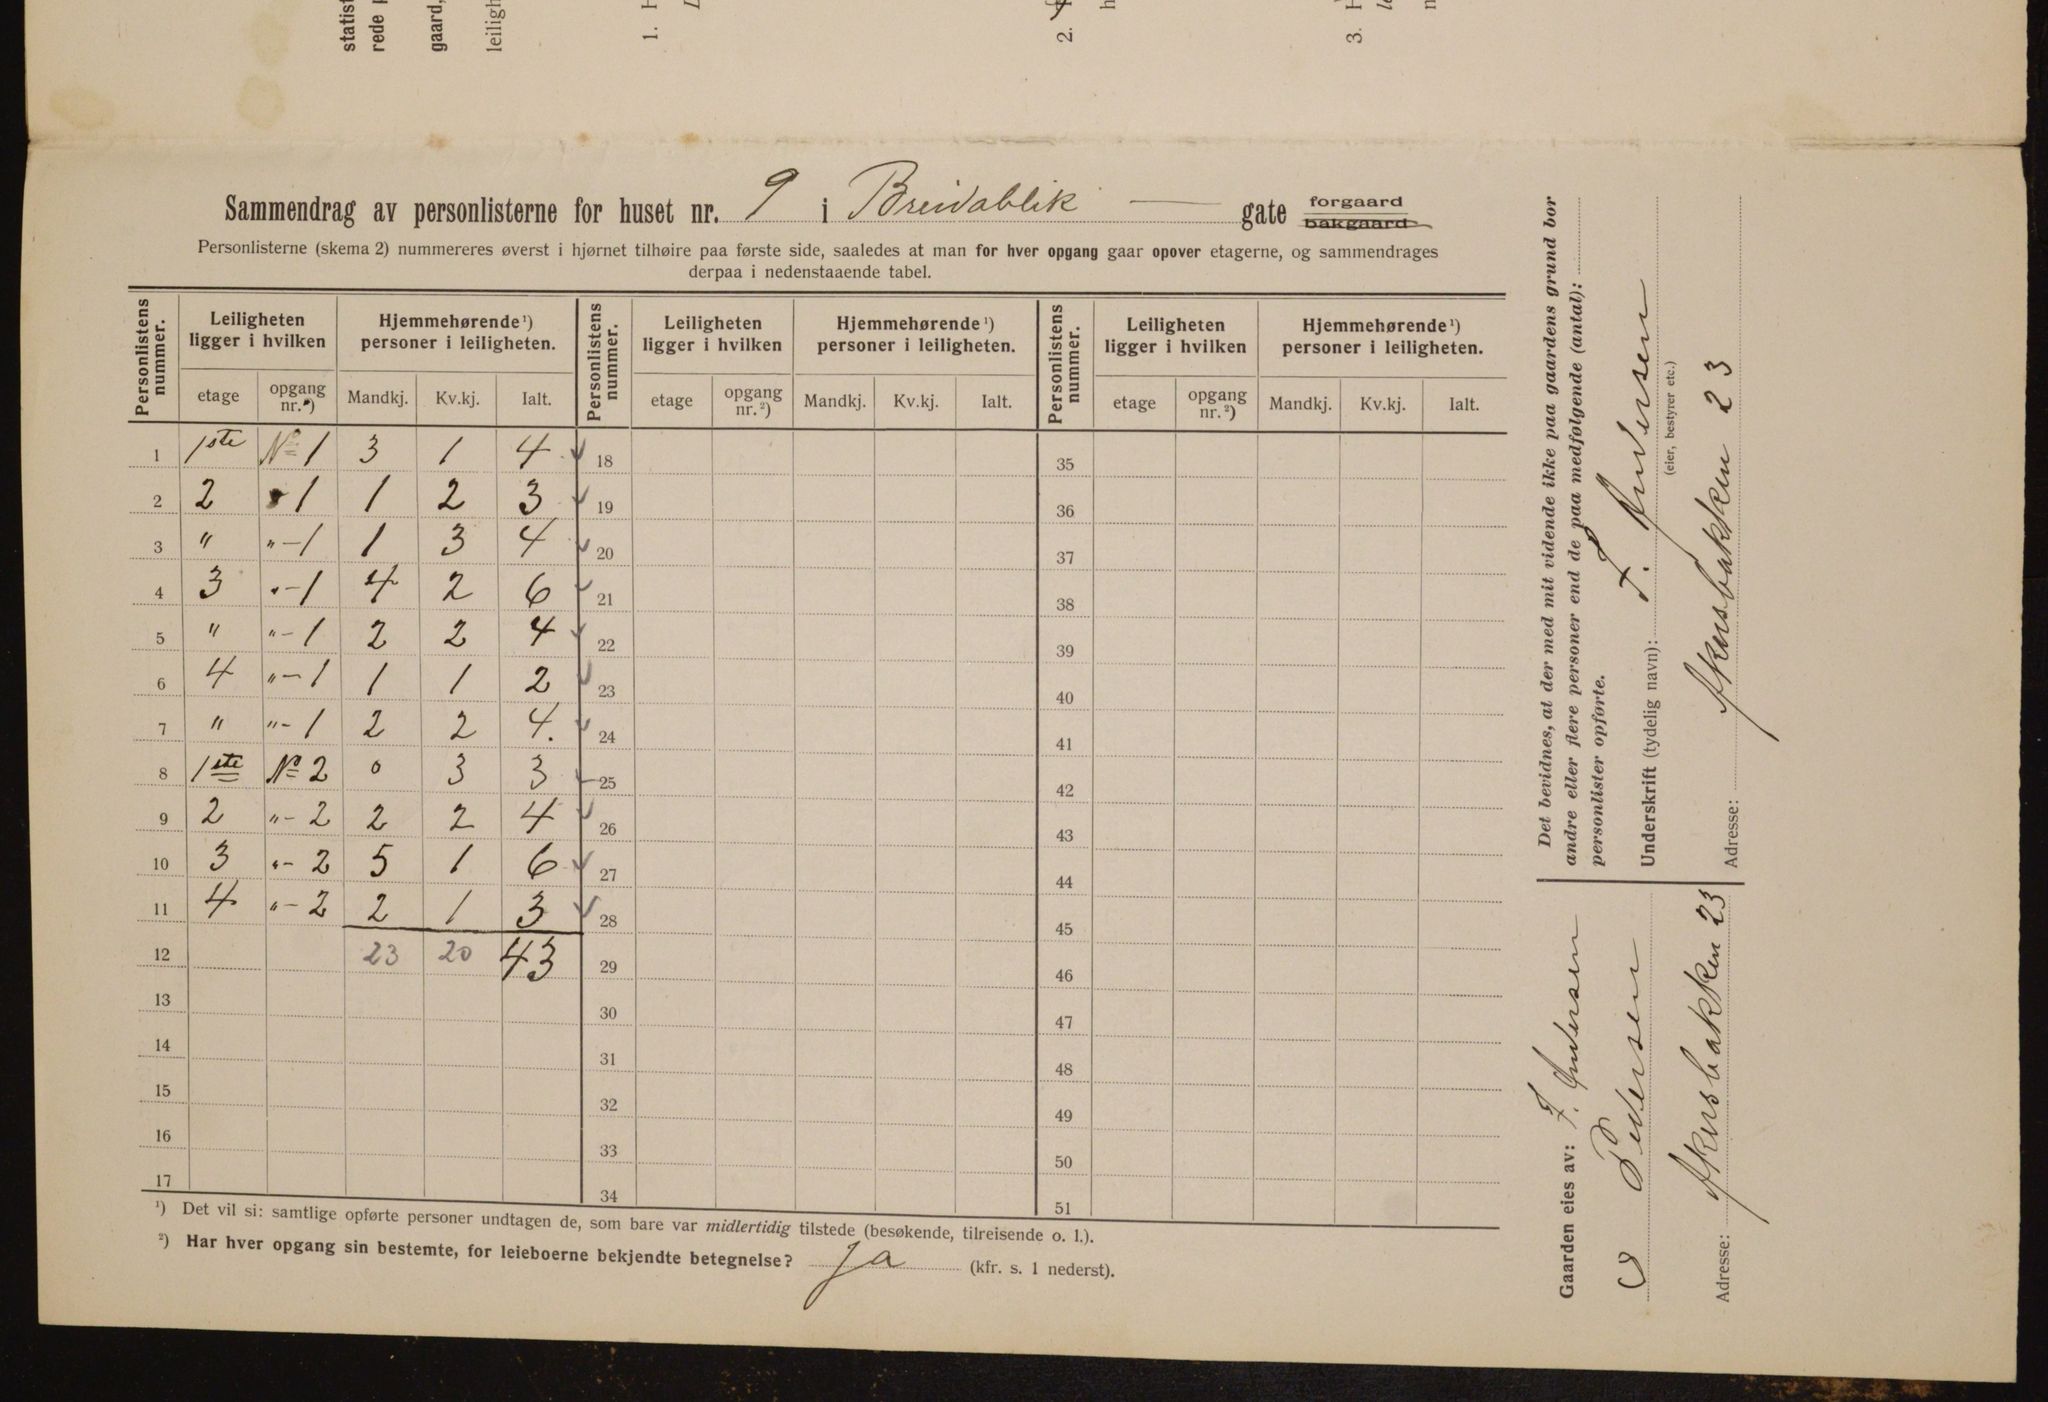 statist
rede p
gaard,
leiligh
1. H
L
2.
h
3. H
le
n
Sammendrag av personlisterne for huset nr. 9 i Breidablik — gate forgaard
bakgaard
Personlisterne (skema 2) nummereres øverst i hjørnet tilhøire paa første side, saaledes at man for hver opgang gaar opover etagerne, og sammendrages
derpaa i nedenstaaende tabel.
Personlistens nummer. Leiligheten ligger i hvilken Hjemmehørende ¹) personer i leiligheten. Personlistens nummer. Leiligheten ligger i hvilken Hjemmehørende ¹) personer i leiligheten. Personlistens nummer. Leiligheten ligger i hvilken Hjemmehørende ¹) personer i leiligheten.
etage opgang nr. ²) Mandkj. Kv.kj. Ialt. etage opgang nr. ²) Mandkj. Kv.kj. Ialt. etage opgang nr. ²) Mandkj. Kv.kj. Ialt.
1 1ste No 1 3 1 4 18 35
2 2 " 1 1 2 3 19 36
3 " "-1 1 3 4 20 37
4 3 "-1 4 2 6 21 38
5 " "-1 2 2 4 22 39
6 4 "-1 1 1 2 23 40
7 " "-1 2 2 4. 24 41
8 1ste No 2 0 3 3 25 42
9 2 "-2 2 2 4 26 43
10 3 "-2 5 1 6 27 44
11 4 "-2 2 1 3 28 45
12 23 20 43 29 46
13 30 47
14 31 48
15 32 49
16 33 50
17 34 51
¹) Det vil si: samtlige opførte personer undtagen de, som bare var midlertidig tilstede (besøkende, tilreisende o. l.).
²) Har hver opgang sin bestemte, for leieboerne bekjendte betegnelse? Ja (kfr. s. 1 nederst).
Det bevidnes, at der med mit vidende ikke paa gaardens grund bor
andre eller flere personer end de paa medfølgende (antal):
personlister opførte.
Underskrift (tydelig navn): F. Andersen
(eier, bestyrer etc.)
Adresse: Akersbakken 23
Gaarden eies av: F. Andersen
& Pedersen
Adresse: Akersbakken 23